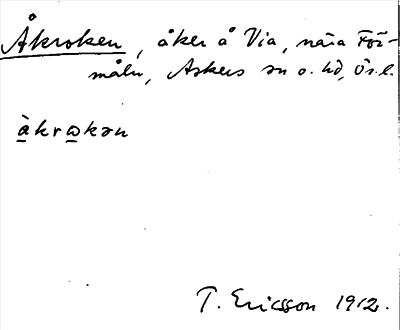 Åkroken, åker å Via, nära För-
måln, Askers sn o. hd, Ör. l.
åkrωkən
T. Ericsson 1912.